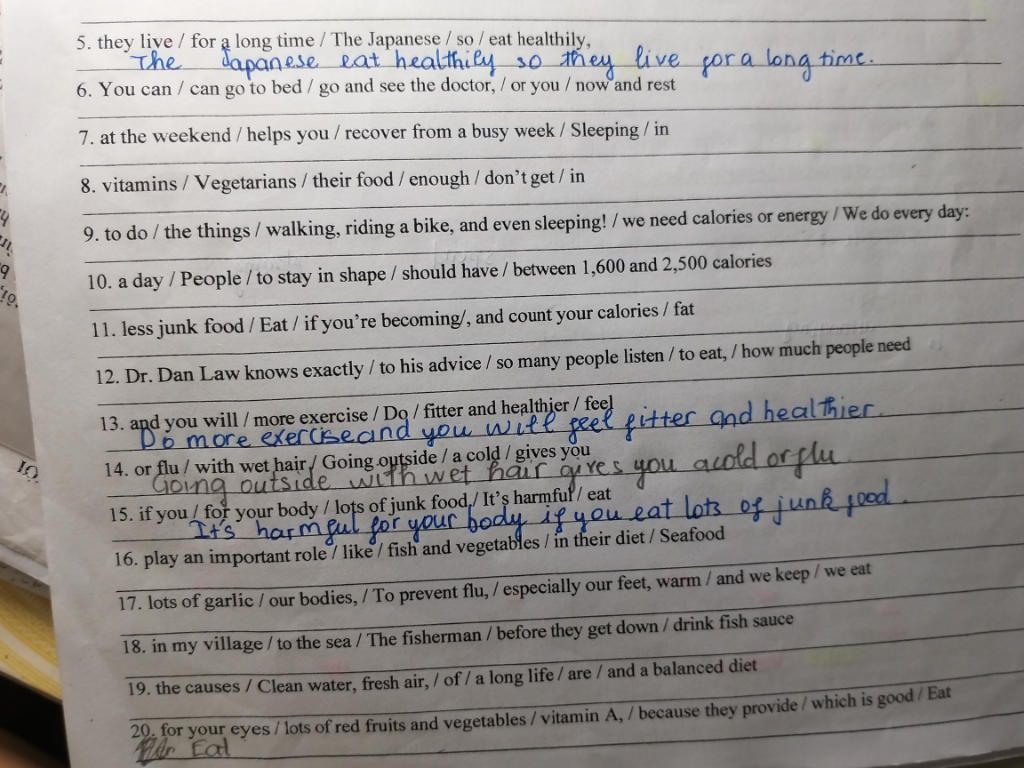 5. they live / for a long time / The Japanese / so / eat healthily,
The Japanese eat healthily so they live for a long time.
6. You can / can go to bed / go and see the doctor, / or you / now and rest
7. at the weekend / helps you / recover from a busy week / Sleeping / in
8. vitamins / Vegetarians / their food / enough / don't get / in
9. to do / the things / walking, riding a bike, and even sleeping! / we need calories or energy / We do every day:
10. a day / People / to stay in shape / should have / between 1,600 and 2,500 calories
11. less junk food / Eat / if you're becoming/, and count your calories / fat
12. Dr. Dan Law knows exactly / to his advice / so many people listen / to eat, / how much people need
13. and you will / more exercise / Do / fitter and healthier / feel
Do more exercise and you will feel fitter and healthier.
14. or flu / with wet hair / Going outside / a cold / gives you
Going outside with wet hair gives you a cold or flu
15. if you / for your body / lots of junk food / It's harmful / eat
It's harmful for your body if you eat lots of junk food.
16. play an important role / like / fish and vegetables / in their diet / Seafood
17. lots of garlic / our bodies, / To prevent flu, / especially our feet, warm / and we keep / we eat
18. in my village / to the sea / The fisherman / before they get down / drink fish sauce
19. the causes / Clean water, fresh air, / of / a long life / are / and a balanced diet
20. for your eyes / lots of red fruits and vegetables / vitamin A, / because they provide / which is good / Eat
Eat